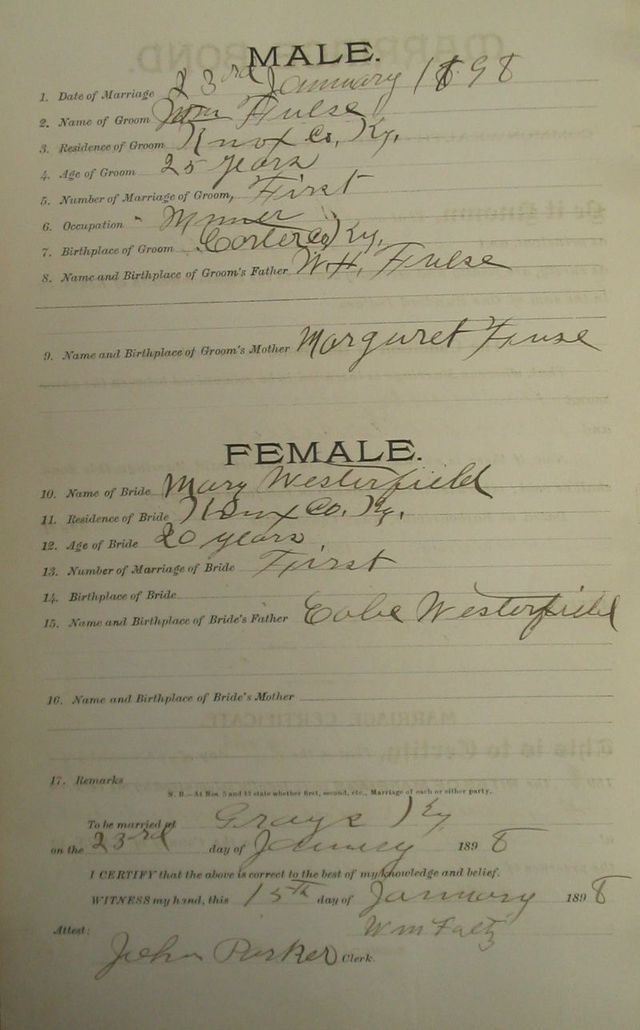 MALE.
1. Date of Marriage 23rd January 1898
2. Name of Groom Wm Hulse
3. Residence of Groom Knox Co, Ky.
4. Age of Groom 25 years
5. Number of Marriage of Groom, First
6. Occupation Minner
7. Birthplace of Groom Carter Co Ky,
8. Name and Birthplace of Groom's Father W.H. Hulse
9. Name and Birthplace of Groom's Mother Margaret
FEMALE.
10. Name of Bride Mary Westerfield
11. Residence of Bride Knox Co. Ky.
12. Age of Bride 20 years
13. Number of Marriage of Bride First
14. Birthplace of Bride
15. Name and Birthplace of Bride's Father Westerfield
16. Name and Birthplace of Bride's Mother
17. Remarks
N. B.—At Nos. 5 and 13 state whether first, second, etc., Marriage of each or either party.
To be married at Grays Ky
on the 23rd day of 1898
I CERTIFY that the above is correct to the best of my knowledge and belief.
WITNESS my hand, this 15th day of January 1898
Wm
Attest:
John Parker Clerk.